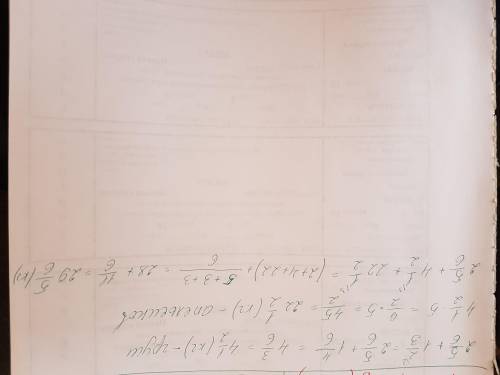 2 5/6 + 1 2/3 = 2 5/6 + 1 4/6 = 4 3/6 = 4 1/2 (кг) - груш
4 1/2 · 5 = 9/2 · 5 = 45/2 = 22 1/2 (кг) - апельсинов
2 5/6 + 4 1/2 + 22 1/2 = (2+4+22) + 5+3+3/6 = 28 + 11/6 = 29 5/6 (кг)